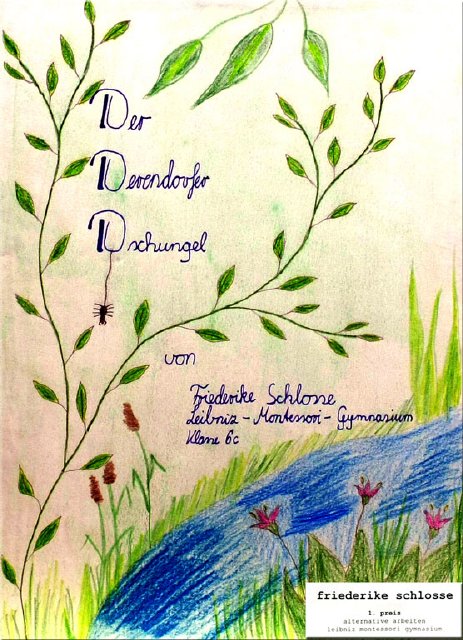 Der
Derendorfer
Dschungel
von
Friederike Schlosse
Leibniz - Montessori - Gymnasium
Klasse 6c
friederike schlosse
1. preis
alternative arbeiten
leibniz montessori gymnasium